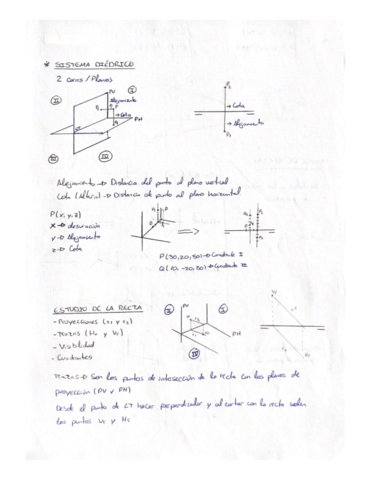 * SISTEMA DIÉDRICO
2 caras / Planos
PV
I
II
Alejamiento
P
Cota
PH
III
IV
P2
Cota
Alejamiento
P1
Alejamiento → Distancia del punto al plano vertical
Cota (Altura) → Distancia de punto al plano horizontal
P(x, y, z)
x →
y → Alejamiento
z → Cota
P(30,20,50) → Cuadrante I
→ Cuadrante II
ESTUDIO DE LA RECTA
- Proyecciones (r1 y r2)
- Trazas (Hr y Vr)
- Visibilidad
- Cuadrantes
PV
II
I
PH
IV
Trazas → Son los puntos de intersección de la recta con los planos de
proyección (PV y PH)
Desde el punto de LT hacer perpendicular y al cortar con la recta salen
los puntos Vr y Hr